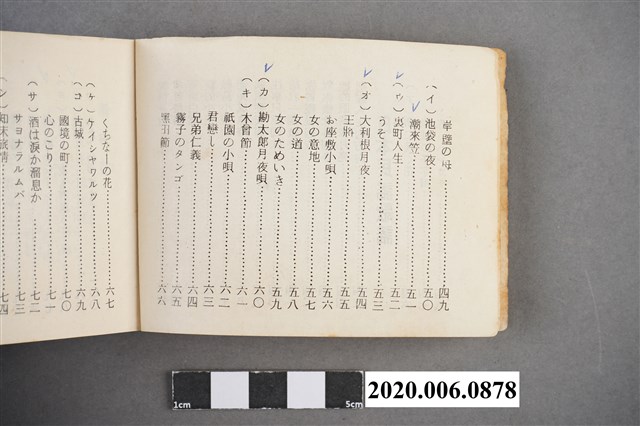 岸壁の母……四九
(イ)池袋の夜……五〇
潮来笠……五一
(ウ)裏町人生……五二
うそ……五三
(オ)大利根月夜……五四
王將……五五
お座敷小唄……五六
女の意地……五七
女の道……五八
女のためいき……五九
(カ)勘太郎月夜唄……六〇
(キ)木曾節……六一
祇園の小唄……六二
君恋し……六三
兄弟仁義……六四
霧子のタンゴ……六五
黒田節……六六
くちなーの花……六七
(ケ)ケイシヤワルツ……六八
(コ)古城……六九
國境の町……七〇
心のこり……七一
(サ)酒は涙か溜息か……七二
サヨナラルムバ……七三
知床旅情……七四
1cm 5cm
2020.006.0878